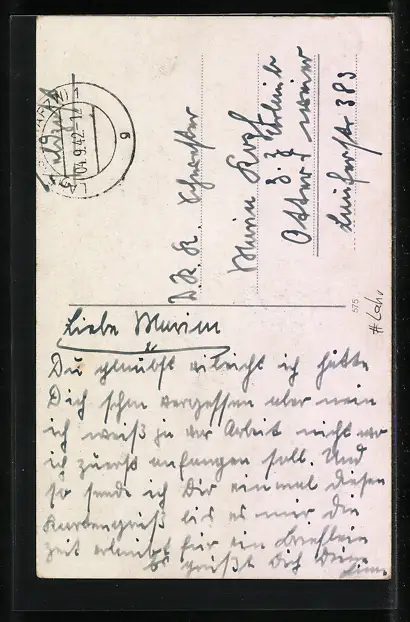 Feldpost
04.9.42
D.R.K. Schwester
Maria Kopf
z. Z.
Ottersweier
575
# Lahr
Liebe Maria
Du glaubst vileicht ich hätte
Dich schon vergessen aber nein
ich weiß ja vor Arbeit nicht wo
ich zuerst anfangen soll. Und
so sende ich Dir einmal diesen
Kartengruß bis es mir die
Zeit erlaubt für ein Brieflein
Es grüßt Dich Deine